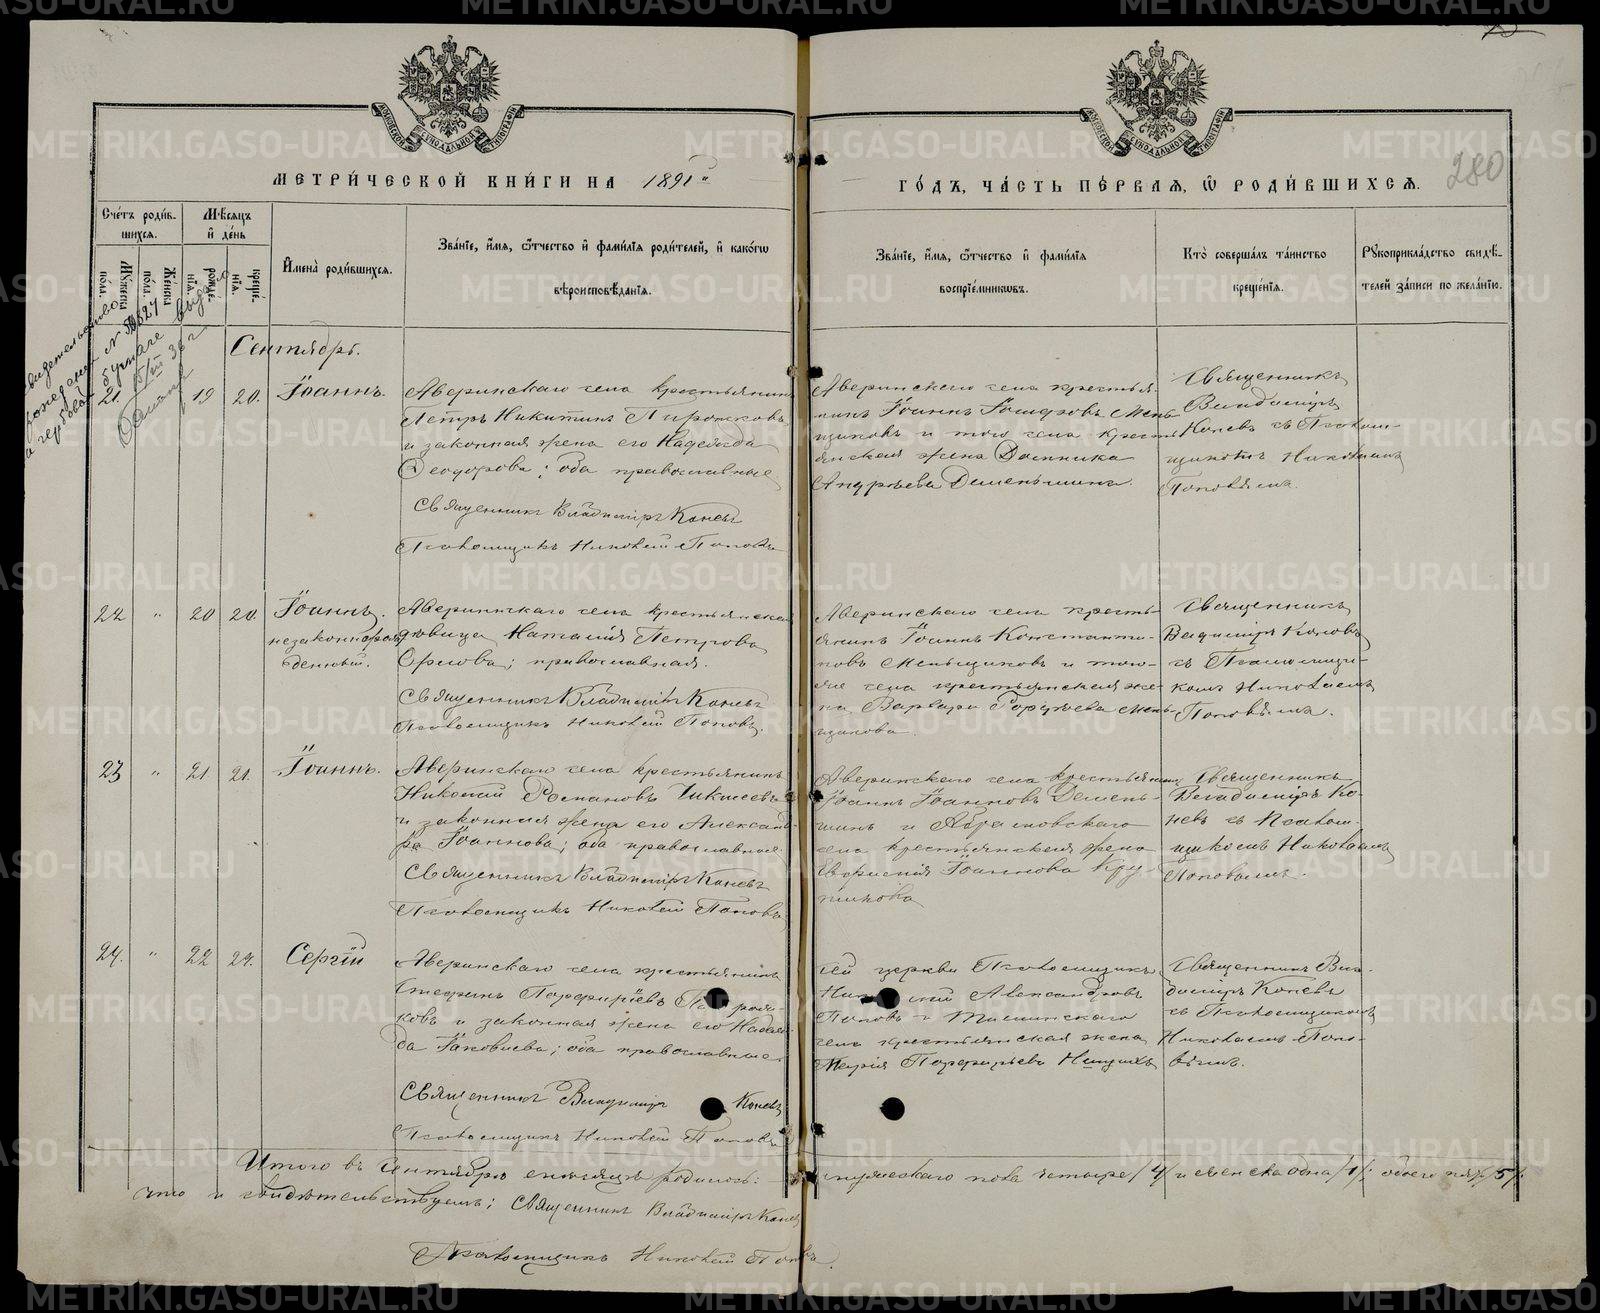 МЕТРИЧЕСКОЙ КНИГИ НА 1891й
ГОДЪ, ЧАСТЬ ПЕРВАЯ, Ѡ РОДИВШИХСЯ.
280
Счетъ родившихся.
Мѣсяцъ и день
Имена родившихся.
Званіе, имя, отчество и фамилія родителей, и какогѡ
вѣроисповѣданія.
Званіе, имя, отчество и фамилія
воспріемникѡвъ.
Кто совершалъ таинство
крещенія.
Рукоприкладство свидѣтелей записи по желанію.
Мужеска пола.
Женска пола.
рожденія.
крещенія.
Сентябрь.
21. 19 20. Іоаннъ.
Аверинскаго села крестьянинъ
Петръ Никитинъ Пирожковъ
и законная жена его Надежда
Ѳеодорова; оба православные
Священникъ Владиміръ Коневъ
Псаломщикъ Николай Поповъ
Аверинскаго села крестья-
нинъ Іоаннъ
щиковъ и того села кресть-
янская жена Домника
Андреева Деменьшина.
Священникъ
Владиміръ
Коневъ съ Псалом-
щикомъ Николаемъ
Поповымъ.
22 " 20 20. Іоаннъ.
незаконнорож-
денный.
Аверинскаго села крестьянская
вдовица Наталія Петрова
Орлова; православная.
Священникъ Владиміръ Коневъ
Псаломщикъ Николай Поповъ.
Аверинскаго села кресть-
янинъ Іоаннъ Константи-
новъ Меньщиковъ и того-
же села крестьянская же-
на Варвара Мень-
щикова.
Священникъ
Владиміръ Коневъ
съ Псаломщи-
комъ Николаемъ
Поповымъ.
23 " 21 21. Іоаннъ.
Аверинскаго села крестьянинъ
Николай Романовъ
и законная жена его Александ-
ра Іоаннова; оба православные
Священникъ Владиміръ Коневъ
Псаломщикъ Николай Поповъ
Аверинскаго села крестьянинъ
Іоаннъ Іоанновъ Демень-
шинъ и Абрамовскаго
села крестьянская жена
Іоаннова Кру-
Священникъ
Владиміръ Ко-
невъ съ Псалом-
щикомъ Николаемъ
Поповымъ.
24. " 22 24. Сергій
Аверинскаго села крестьянинъ
Стефанъ Порфиріевъ
ковъ и законная жена его Надеж-
да Іаковлева; оба православные
Священникъ Владиміръ Коневъ
Псаломщикъ Николай Поповъ
сей церкви Псаломщикъ
Николай Александровъ
Поповъ и
села крестьянская жена
Марія Порфирьева
Священникъ Вла-
диміръ Коневъ
съ Псаломщикомъ
Николаемъ Попо-
вымъ.
Итого въ Сентябрѣ мѣсяцѣ родилось: мужескаго пола четыре /4/ и женска одна /1/; обоего пола /5/
что и свидѣтельствуемъ: Священникъ Владиміръ Коневъ
Псаломщикъ Николай Поповъ.
METRIKI.GASO-URAL.RU